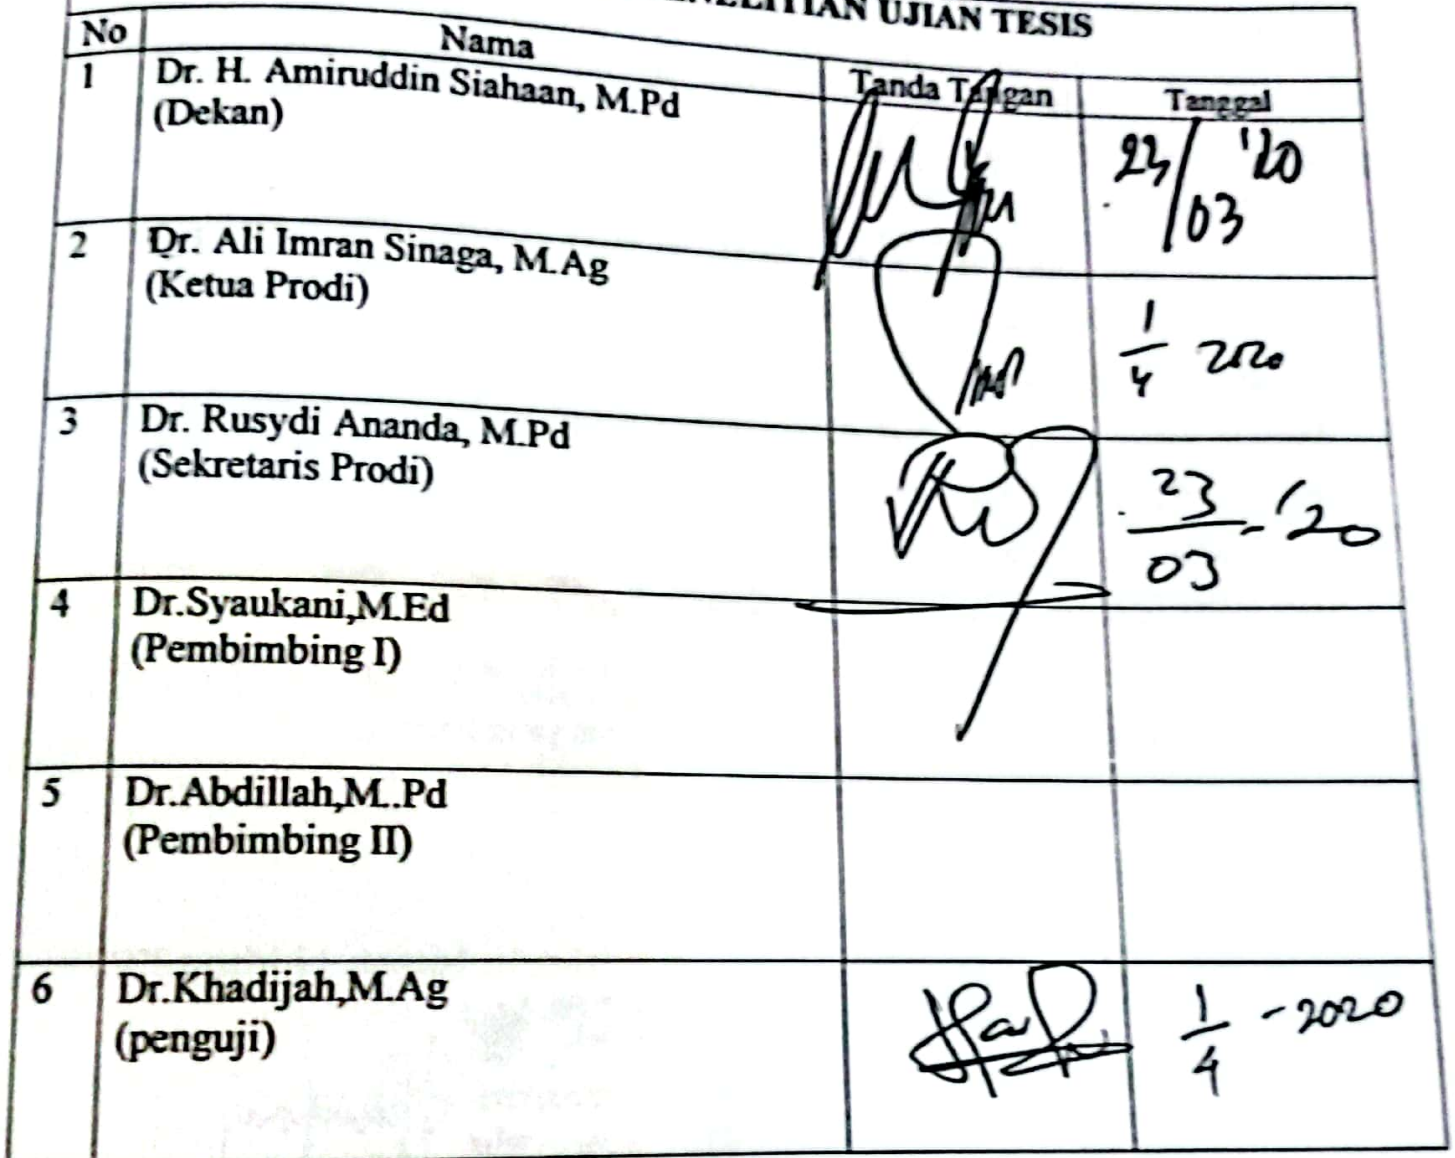 UJIAN TESIS
No Nama Tanda Tangan Tanggal
1 Dr. H. Amiruddin Siahaan, M.Pd
(Dekan)
23/03 '20
2 Dr. Ali Imran Sinaga, M.Ag
(Ketua Prodi)
1/4 2020
3 Dr. Rusydi Ananda, M.Pd
(Sekretaris Prodi)
23/03 - '20
4 Dr.Syaukani,M.Ed
(Pembimbing I)
5 Dr.Abdillah,M..Pd
(Pembimbing II)
6 Dr.Khadijah,M.Ag
(penguji)
1/4 - 2020